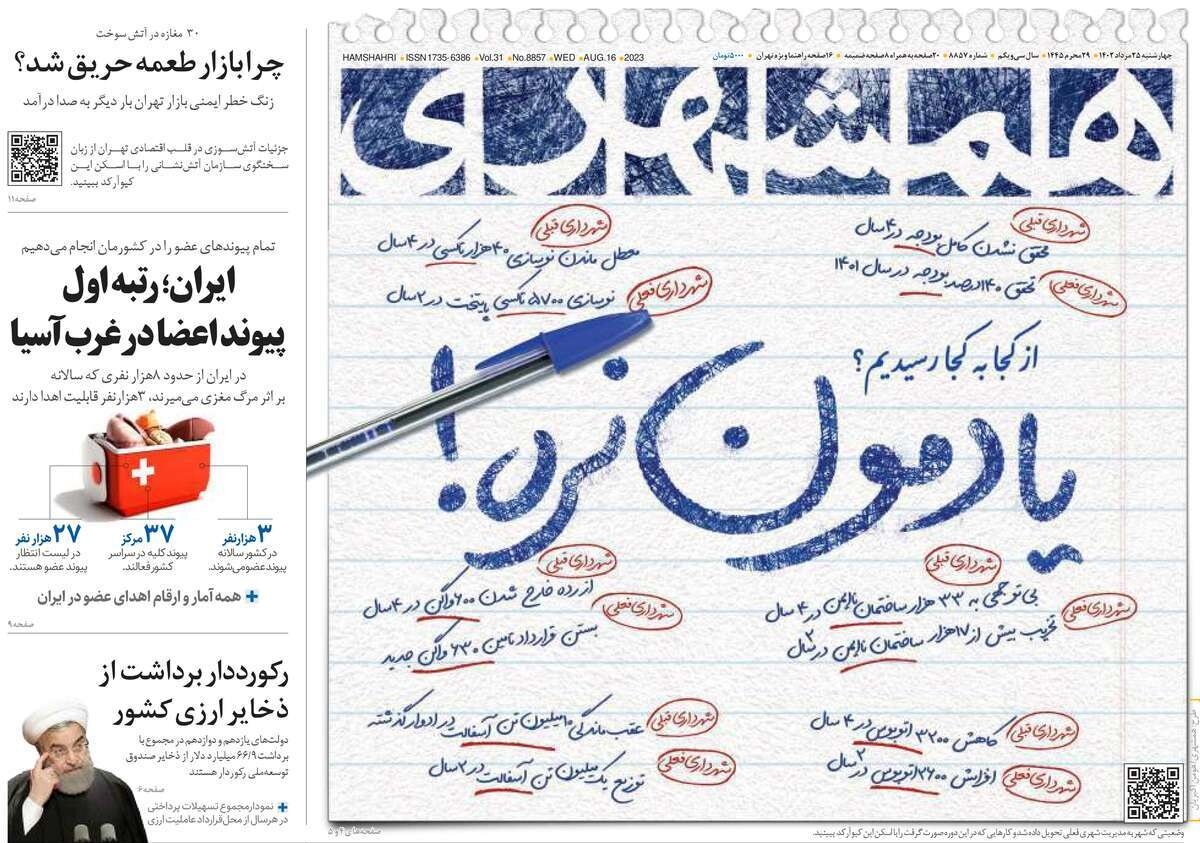 چهارشنبه ۲۵ مرداد ۱۴۰۲ ■ ۲۹ محرم ۱۴۴۵ ■ سال سی‌ویکم ■ شماره ۸۸۵۷ ■ ۲۰صفحه به همراه ۸صفحه ضمیمه ■ ۱۶صفحه راهنما ویژه تهران ■ ۵۰۰۰تومان
HAMSHAHRI ■ ISSN 1735- 6386 ■ Vol.31 ■ No.8857 ■ WED ■ AUG.16 ■ 2023
همشهری
شهرداری قبلی
محقق نشدن کامل بودجه در ۴ سال
شهرداری فعلی
تحقق ۱۴۰ درصد بودجه در سال ۱۴۰۱
شهرداری قبلی
معطل ماندن نوسازی ۴۰ هزار تاکسی در ۴ سال
شهرداری فعلی
نوسازی ۵۷۰۰ تاکسی پایتخت در ۲ سال
از کجا به کجا رسیدیم؟
یادمون نره!
شهرداری قبلی
بی توجهی به ۳۳ هزار ساختمان ناایمن در ۴ سال
شهرداری فعلی
تخریب بیش از ۱۷ هزار ساختمان ناایمن در ۲ سال
شهرداری قبلی
از رده خارج شدن ۶۰۰ واگن در ۴ سال
شهرداری فعلی
بستن قرارداد تامین ۶۳۰ واگن جدید
شهرداری قبلی
کاهش ۳۲۰۰ اتوبوس در ۴ سال
شهرداری فعلی
افزایش ۲۶۰۰ اتوبوس در ۲ سال
شهرداری قبلی
عقب ماندگی ۱۰ میلیون تن آسفالت در ادوار گذشته
شهرداری فعلی
توزیع یک میلیون تن آسفالت در ۲ سال
وضعیتی که شهر به مدیریت شهری فعلی تحویل داده شد و کارهایی که در این دوره صورت گرفت را با اسکن این کیوآرکد ببینید.
صفحه‌های ۴ و ۵
۳۰ مغازه در آتش سوخت
چرا بازار طعمه حریق شد؟
زنگ خطر ایمنی بازار تهران بار دیگر به صدا درآمد
جزئیات آتش‌سوزی در قلب اقتصادی تهران از زبان
سخنگوی سازمان آتش‌نشانی را با اسکن این
کیوآرکد ببینید.
صفحه ۱۱
تمام پیوندهای عضو را در کشورمان انجام می‌دهیم
ایران؛ رتبه اول
پیوند اعضا در غرب آسیا
در ایران از حدود ۸هزار نفری که سالانه
بر اثر مرگ مغزی می‌میرند، ۳هزار نفر قابلیت اهدا دارند
۳هزار نفر
در کشور سالانه
پیوند عضو می‌شوند.
۳۷ مرکز
پیوند کلیه در سراسر
کشور فعالند.
۲۷ هزار نفر
در لیست انتظار
پیوند عضو هستند.
+ همه آمار و ارقام اهدای عضو در ایران
صفحه ۹
رکورددار برداشت از
ذخایر ارزی کشور
دولت‌های یازدهم و دوازدهم در مجموع با
برداشت ۶۶/۹ میلیارد دلار از ذخایر صندوق
توسعه ملی رکوردار هستند
صفحه ۶
+ نمودار مجموع تسهیلات پرداختی
در هر سال از محل قرارداد عاملیت ارزی